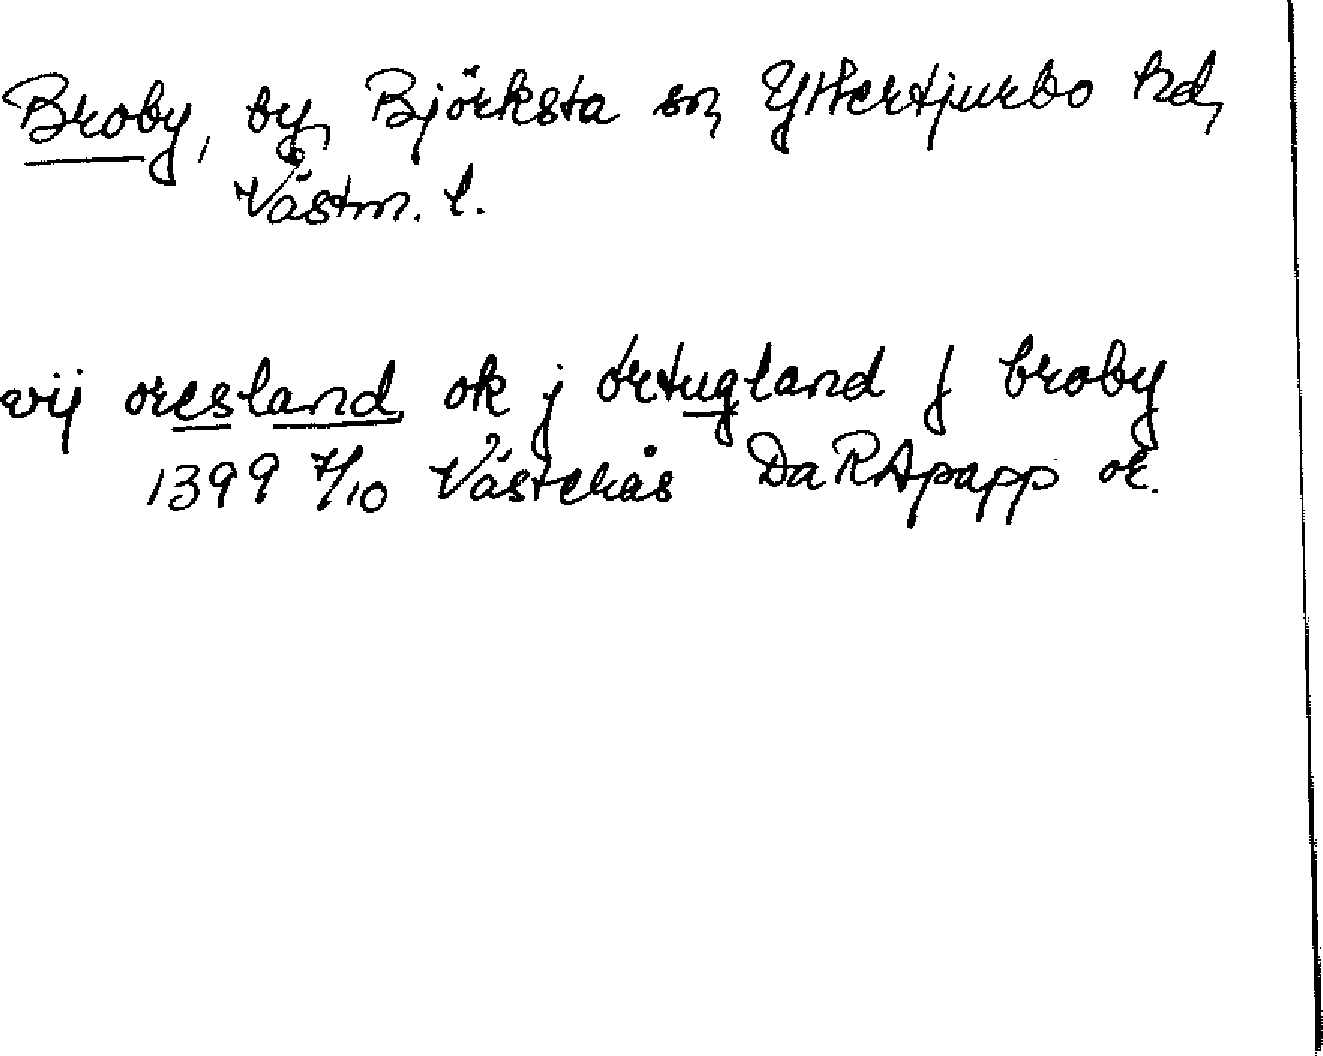 Broby, by, Björksta sn, Yttertjurbo hd,
Västm. l.
vij øresland ok j ørtugland j broby
1399 7/10 Västerås DaRApapp or.